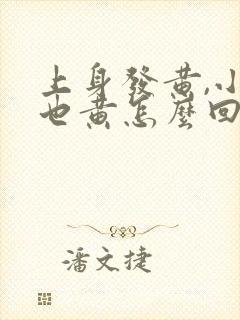 上身發黄,小
也黄怎麼回
潘文捷